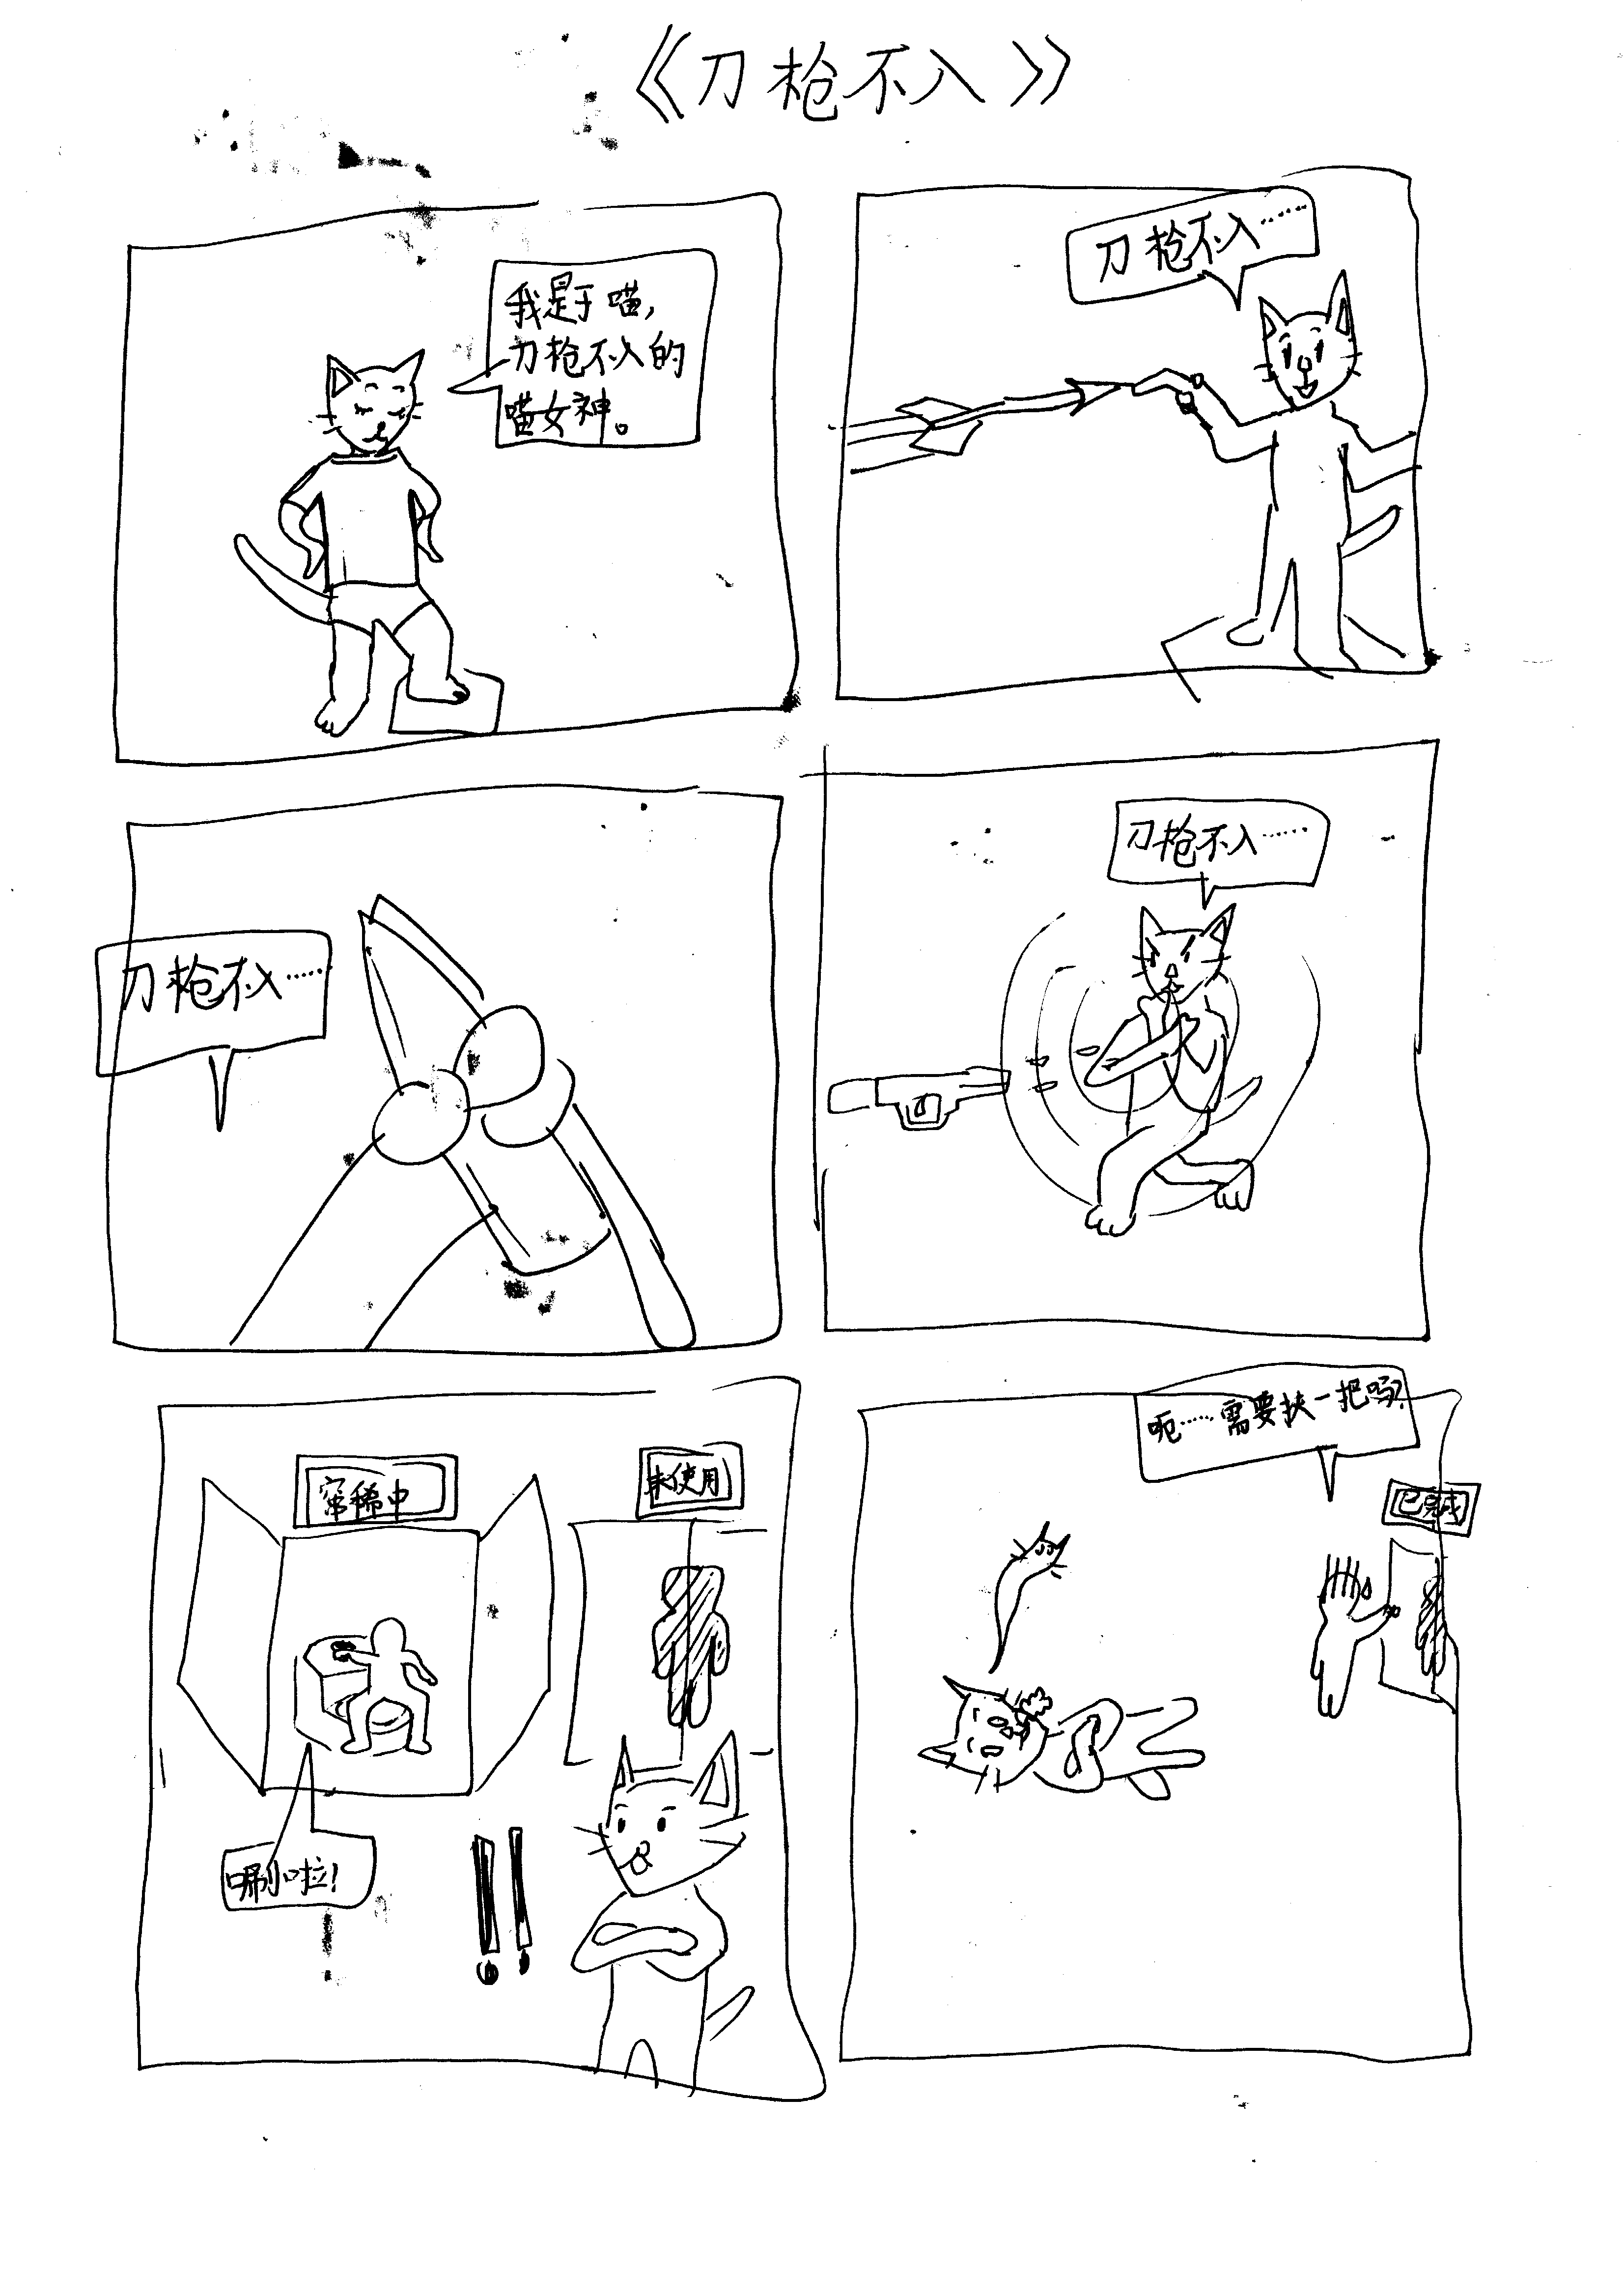 《刀枪不入》
我是于喵,
刀枪不入的
喵女神。
刀枪不入……
刀枪不入……
刀枪不入……
窜稀中
未使用
唰啦!
!!
呃……需要扶一把吗?
已完成